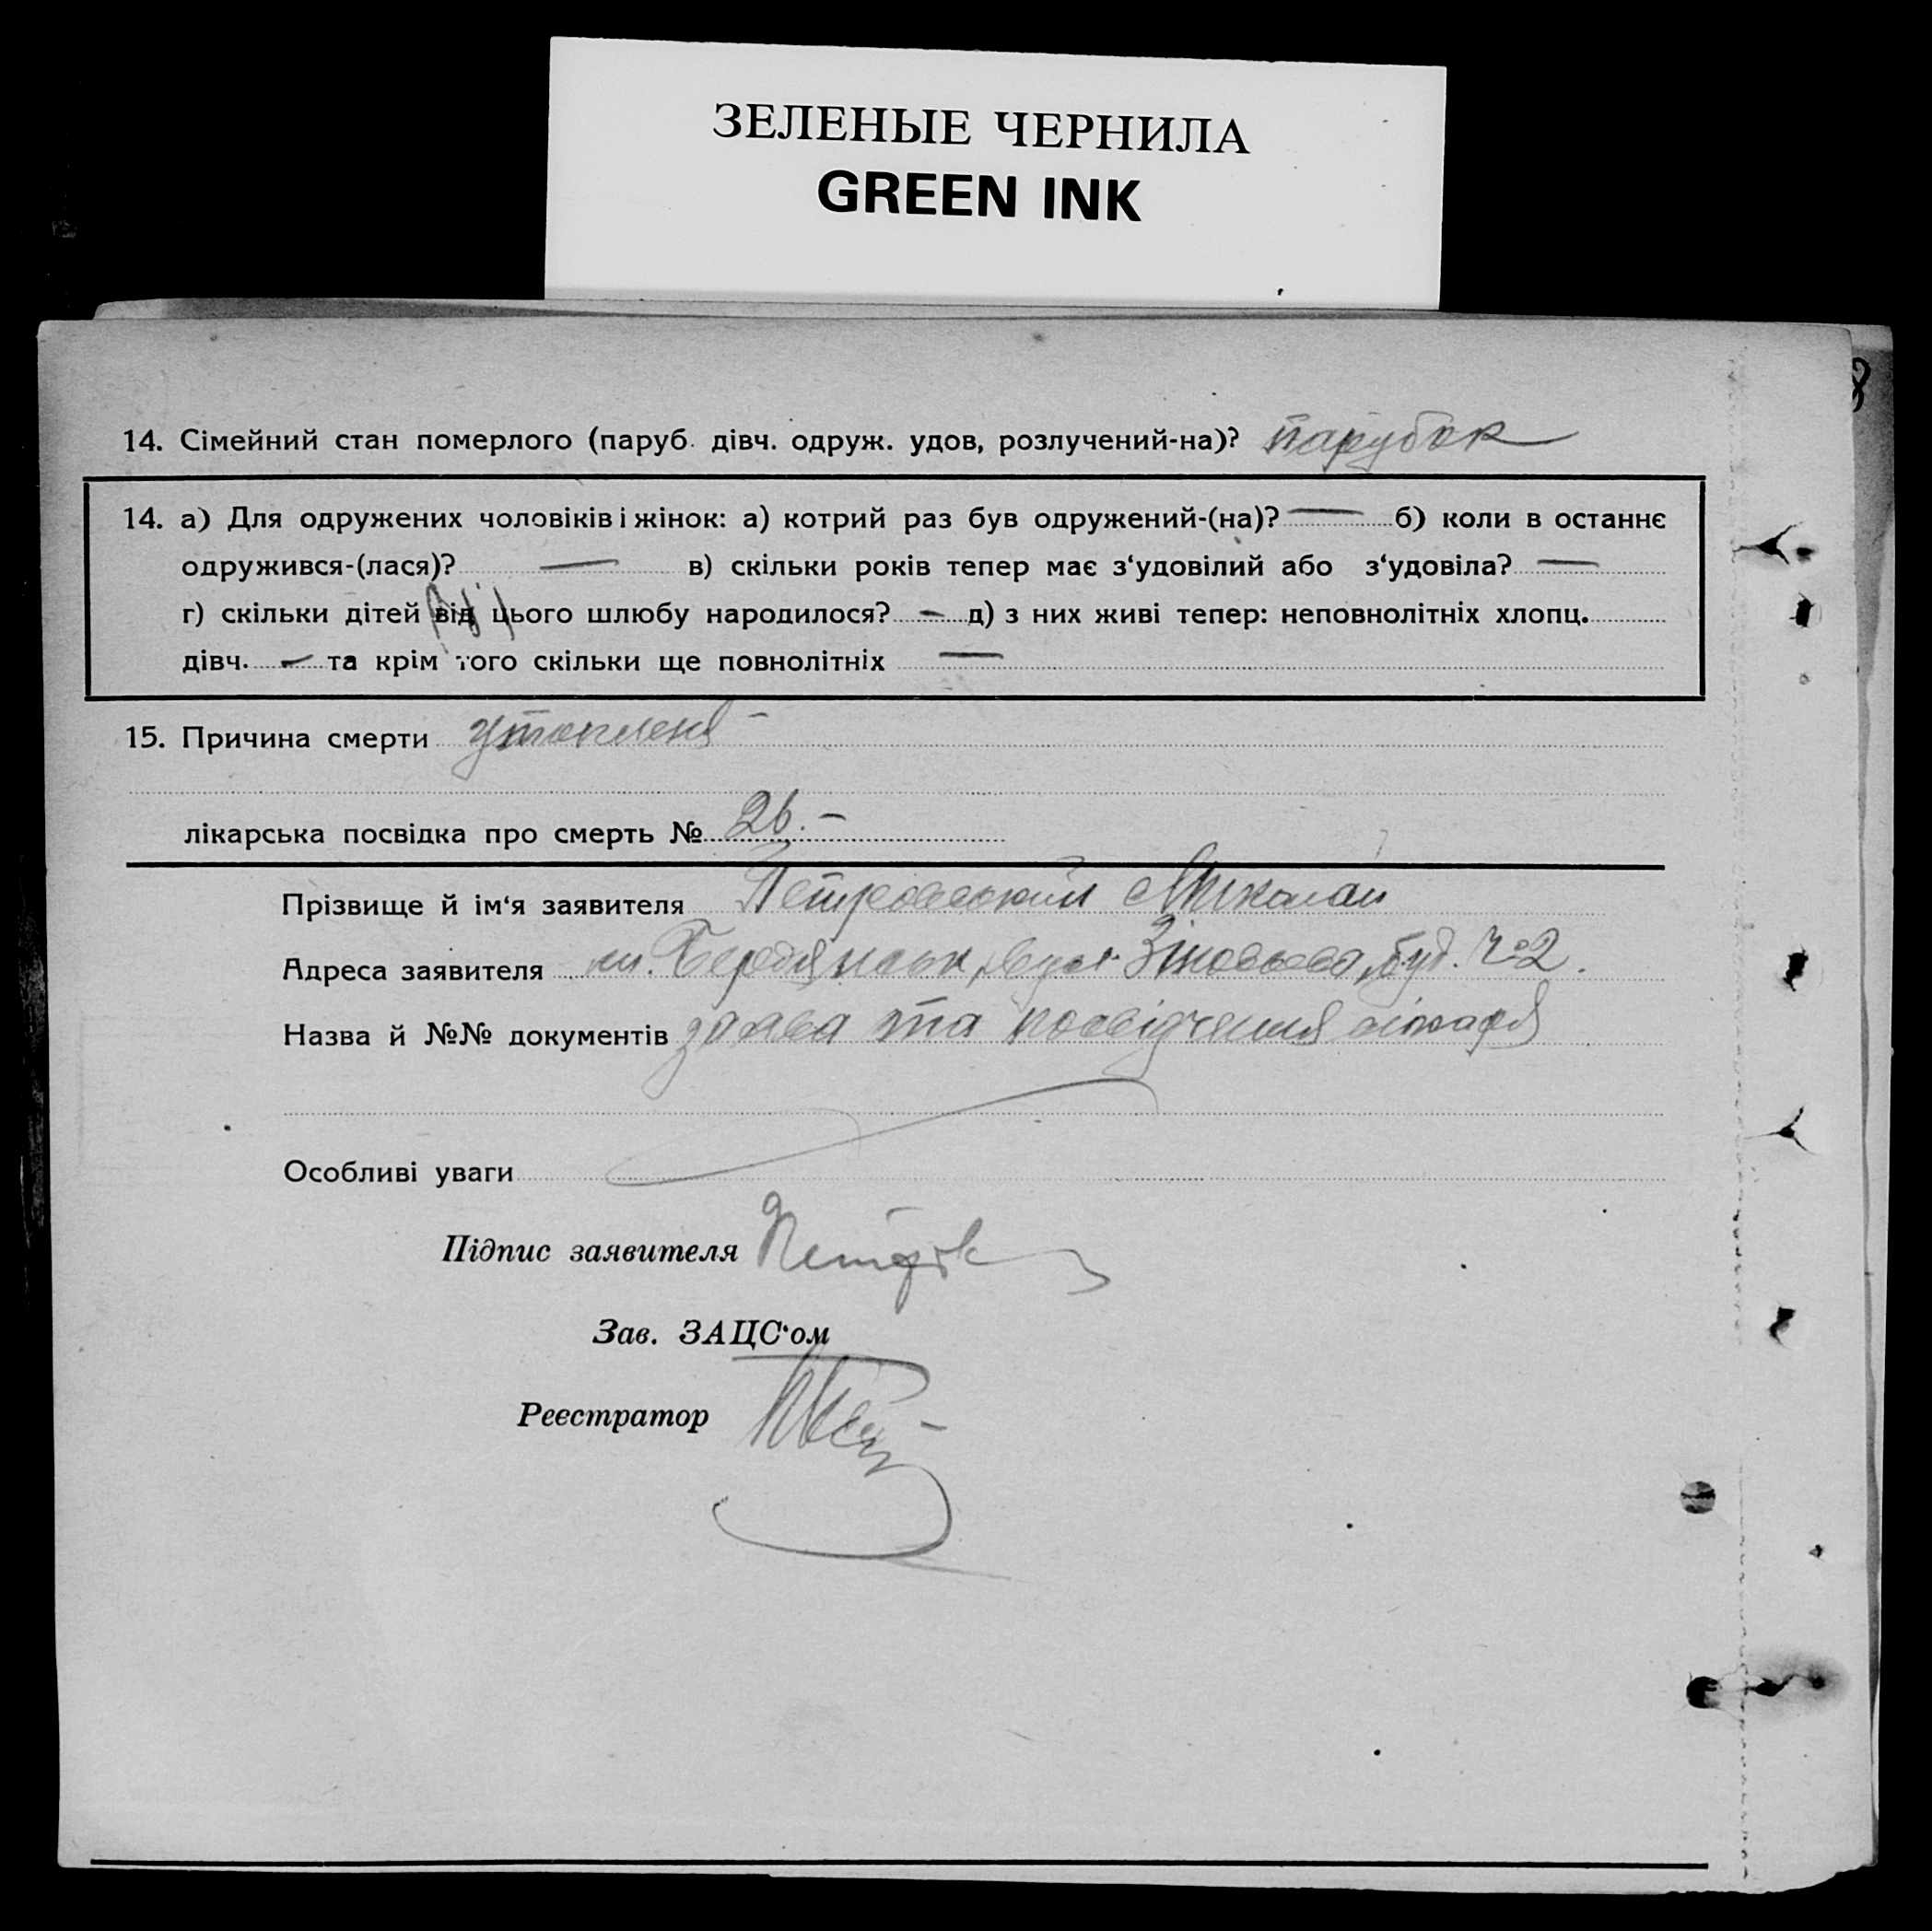 ЗЕЛЕНЫЕ ЧЕРНИЛА
GREEN INK
8
14. Сімейний стан померлого (паруб. дівч. одруж. удов, розлучений-на)? парубок
14. а) Для одружених чоловіків і жінок: а) котрий раз був одружений-(на)? — б) коли в останнє
одружився-(лася)? — в) скільки років тепер має з‘удовілий або з‘удовіла? —
г) скільки дітей від цього шлюбу народилося? — д) з них живі тепер: неповнолітніх хлопц.
дівч. — та крім того скільки ще повнолітніх —
15. Причина смерти утоплення -
лікарська посвідка про смерть № 26. -
Прізвище й ім‘я заявителя Петровський Микола
Адреса заявителя м. Бердянськ, вул. Зіновьева, буд. №2.
Назва й №№ документів заява та посвідчення лікаря
Особливі уваги
Підпис заявителя
Зав. ЗАЦС‘ом
Реєстратор